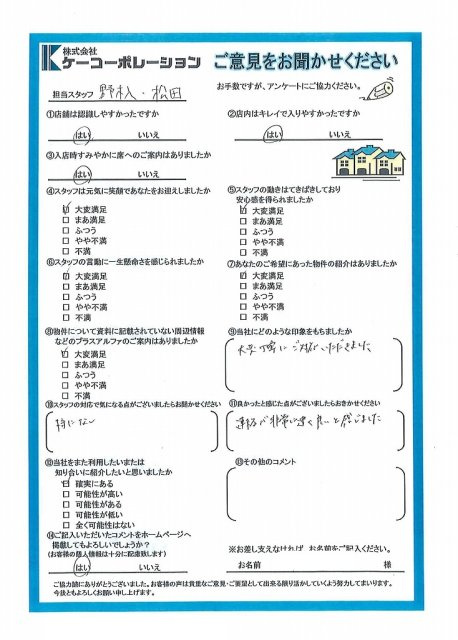 株式会社
ケーコーポレーション
ご意見をお聞かせください
担当スタッフ 野村・松田
お手数ですが、アンケートにご協力ください。
①店舗は認識しやすかったですか
はい いいえ
②店内はキレイで入りやすかったですか
はい いいえ
③入店時すみやかに席へのご案内はありましたか
はい いいえ
④スタッフは元気に笑顔であなたをお迎えしましたか
大変満足
まあ満足
ふつう
やや不満
不満
⑤スタッフの動きはてきぱきしており
安心感を得られましたか
大変満足
まあ満足
ふつう
やや不満
不満
⑥スタッフの言動に一生懸命さを感じられましたか
大変満足
まあ満足
ふつう
やや不満
不満
⑦あなたのご希望にあった物件の紹介はありましたか
大変満足
まあ満足
ふつう
やや不満
不満
⑧物件について資料に記載されていない周辺情報
などのプラスアルファのご案内はありましたか
大変満足
まあ満足
ふつう
やや不満
不満
⑨当社にどのような印象をもちましたか
大変丁寧にご対応いただきました
⑩スタッフの対応で気になる点がございましたらお聞かせください
特になし
⑪良かったと感じた点がございましたらおきかせください
連絡が非常に速く良いと感じました
⑫当社をまた利用したいまたは
知り合いに紹介したいと思いましたか
確実にある
可能性が高い
可能性がある
可能性が低い
全く可能性はない
⑬その他のコメント
⑭ご記入いただいたコメントをホームページへ
掲載してもよろしいでしょうか?
(お客様の個人情報は十分に配慮致します)
はい いいえ
※お差し支えなければ、お名前をご記入ください。
お名前 様
ご協力誠にありがとうございました。お客様の声は貴重なご意見・ご要望として出来る限り活かしていくよう努力してまいります。
今後ともよろしくお願い申し上げます。